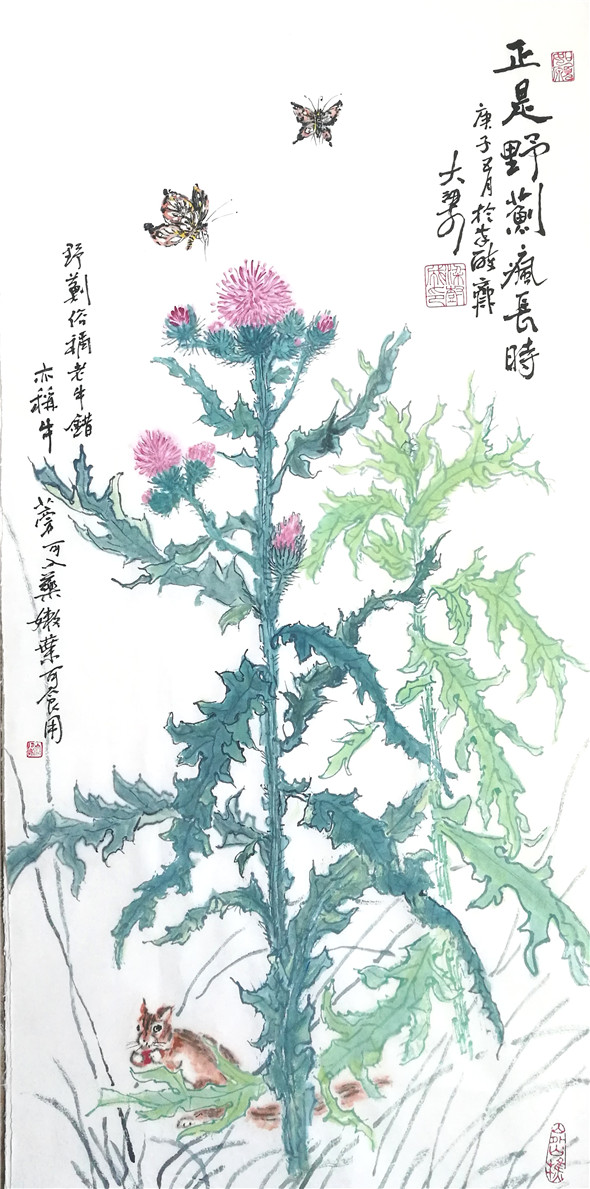 正是野薊瘋長時
庚子五月於齋
大
野薊俗稱老牛錯
亦稱牛蒡可入藥嫩葉可食用